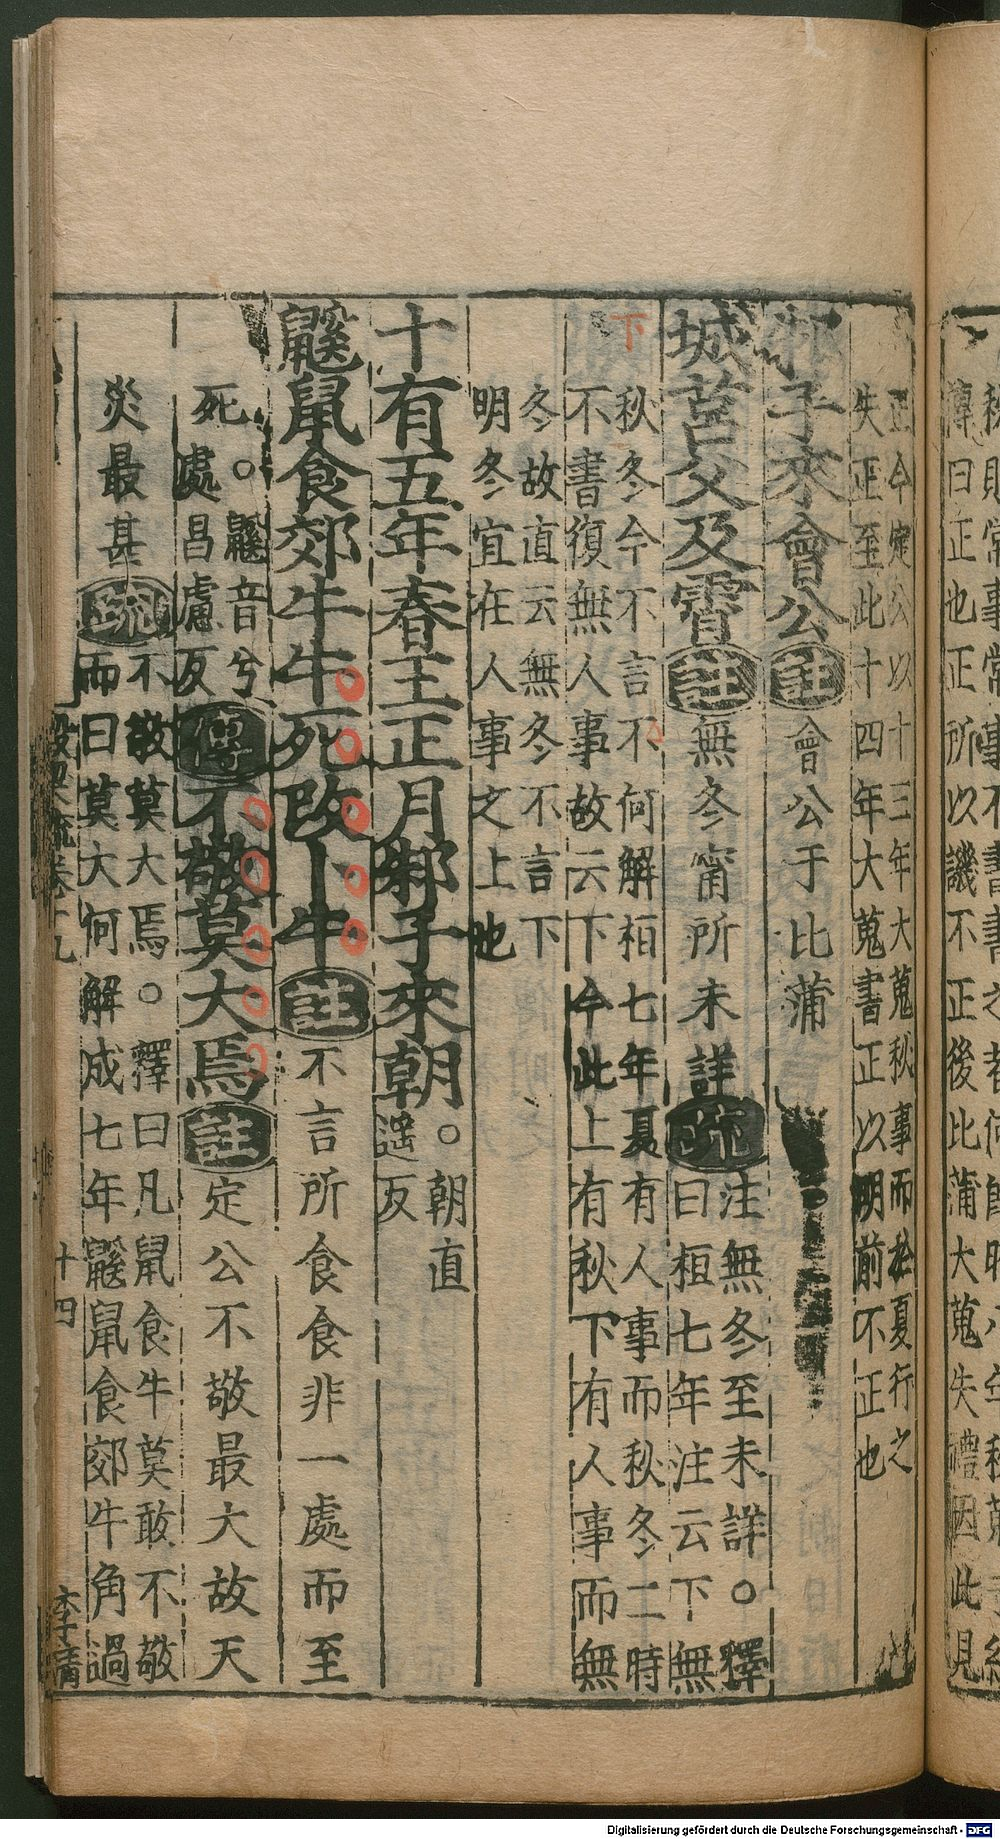 傳曰正也正所以譏不正後比蒲大蒐失禮因此見
正今定公以十三年大蒐秋事而於夏行之
失正至此十四年大蒐書正以明前不正也
邾子來會公註會公于比蒲
城莒父及霄註無冬甯所未詳疏
注無冬至未詳○釋
曰桓七年注云下無
秋冬今不言不何解桓七年夏有人事而秋冬二時
不書復無人事故云下今此上有秋下有人事而無
冬故直云無冬不言下
明冬宜在人事之上也
下
十有五年春王正月邾子來朝
○朝直
遥反
鼷鼠食郊牛牛死改卜牛註不言所食食非一處而至
死○鼷音兮
處昌慮反
傳不敬莫大焉註定公不敬最大故天
災最甚疏
不敬莫大焉○釋曰凡鼠食牛莫敢不敬
而曰莫大何解成七年鼷鼠食郊牛角過
穀梁疏卷十九
十四
李清
Digitalisierung gefördert durch die Deutsche Forschungsgemeinschaft - DFG